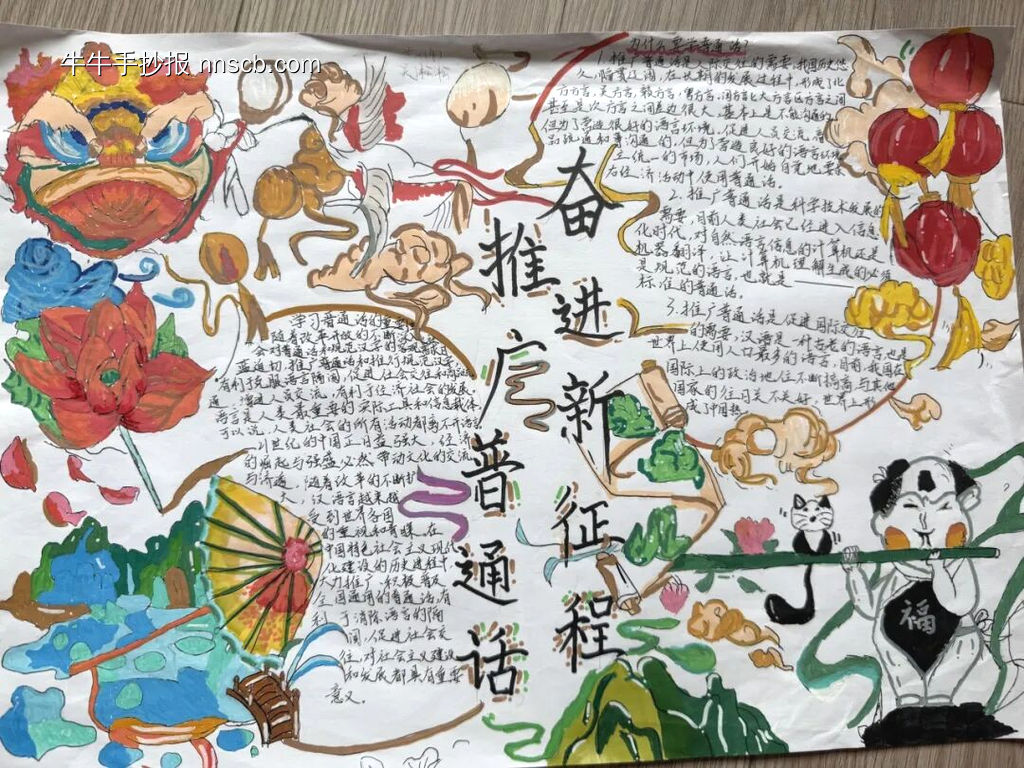 牛牛手抄报 nnscb.com
推广普通话
奋进新征程
为什么要学普通话?
1.推广普通话是人际交往的需要,我国历史悠
久,幅员辽阔,在长期的发展过程中,形成了北
方方言,吴方言,赣方言,粤方言,闽方言七大方言
甚至是次方言之间差边很大,基本上是不能沟通的
但为了营造很好的语言环境,促进人员交流,商
品流通和
的,但为了营造良好的语言环境
立统一的市场,人们开始自觉地要求
在经济活动中使用普通话。
2.推广普通话是科学技术发展的
需要,目前人类社会已经进入信息
化时代,对自然语言信息的计算机还是
机器翻译,让计算机理解生成的必须
是规范的语言,也就是
标准的普通话。
3.推广普通话是促进国际交往
的需要,汉语是一种古老的语言,也是
世界上使用人口最多的语言,目前,我国在
国际上的政治地位不断搞高,与其他
国家的往
关
不是好,世界上形
成了中国热
学习普通话的重要
随着改革开放的不断
会对普通话和规范汉字的
益迫切,推广普通话和推行规范汉字
有利于克服语言隔阂,促进社会交往和
通,增进人员交流,有利于经济社会的发展,
语言是人类最重要的交际工具和信息载体
可以说,人类社会的所有活动都离不开语言
21世纪的中国正日益强大,经济
的崛起与强盛必然带动文化的交流
与沟通,随着改革的不断扩
大,汉语言越来越
受到世界各国
的重视和青睐,在
中国特色社会主义现代
化建设的历史进程中,
大力推广,积极普及
全国通用的普通话,有
利于消除语言的隔
阂,促进社会交
往,对社会主义建设
和发展都具有重要
意义。
福